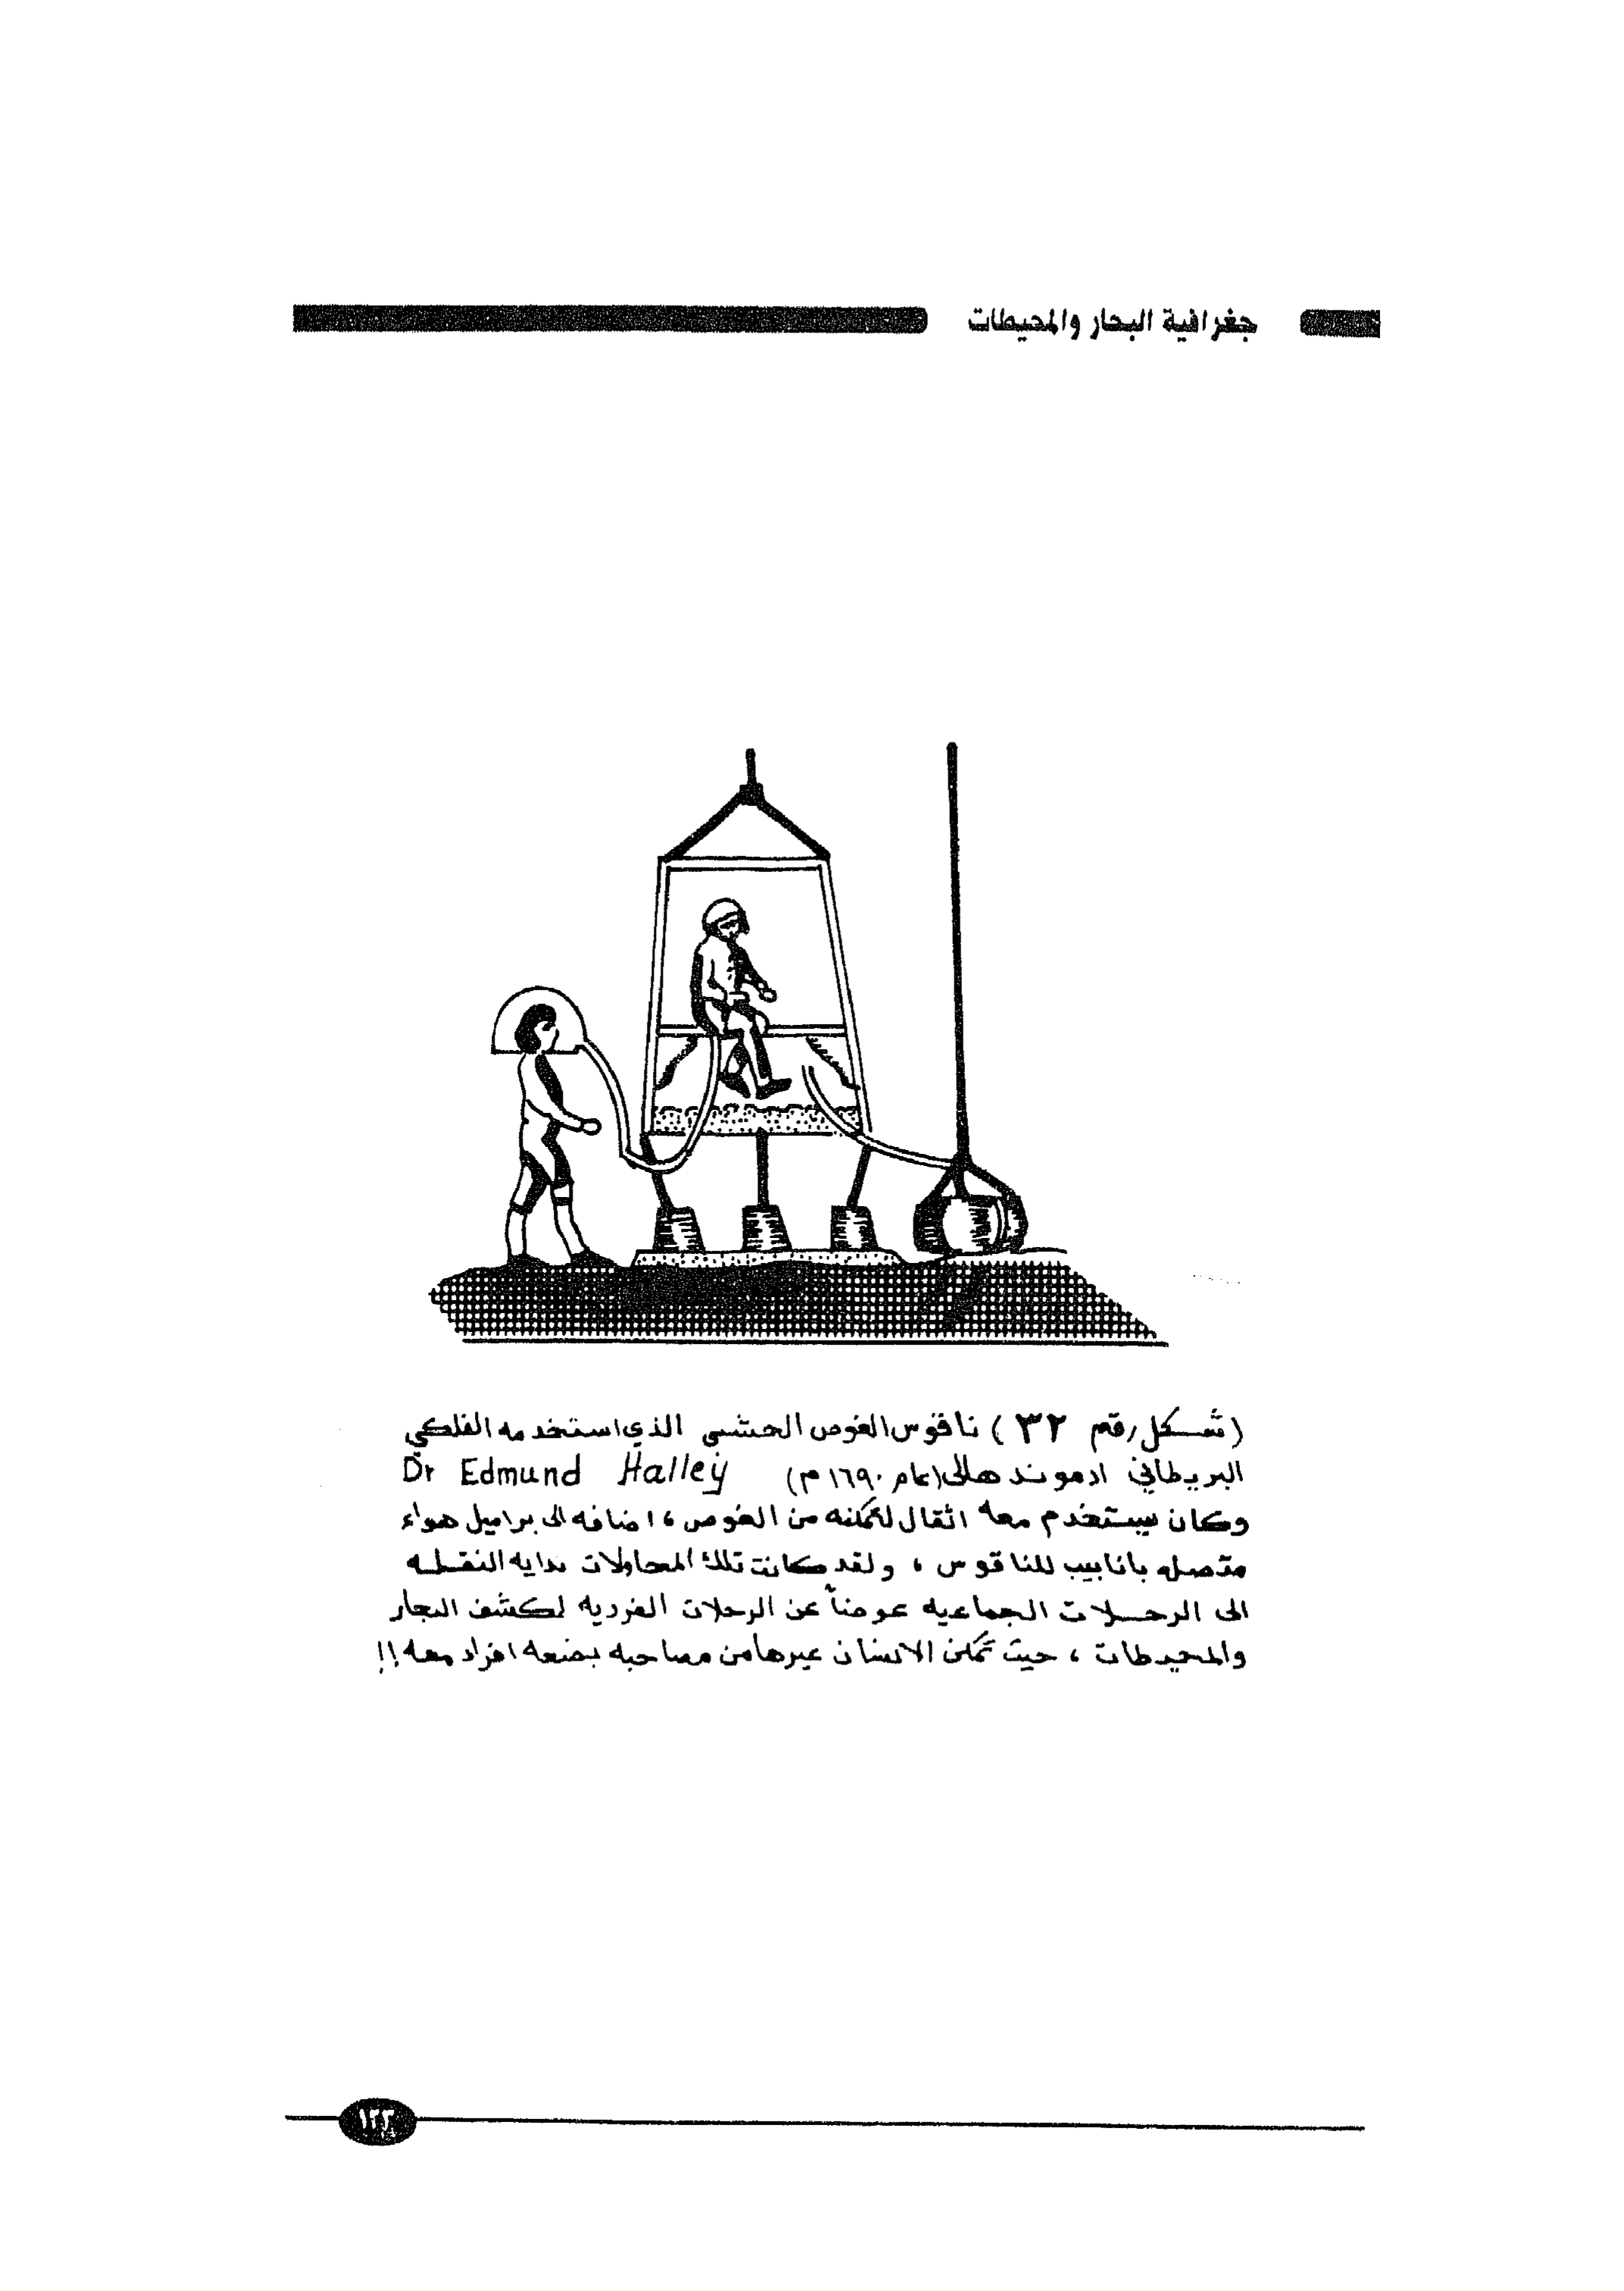 جغرافية البحار والمحيطات
(شكل رقم ٣٢) ناقوس الغوص الخشبي الذي استخدمه الفلكي
البريطاني ادموند هالي (عام ١٦٩٠م) Dr Edmund Halley
وكان يستخدم معه اثقال لتمكنه من الغوص، اضافه الى براميل هواء
متصله بانابيب للناقوس، ولقد كانت تلك المحاولات بدايه النقله
الى الرحلات الجماعيه عوضاً عن الرحلات الفرديه لكشف البحار
والمحيطات، حيث تمكن الانسان عبرها من مصاحبه بضعه افراد معه!!